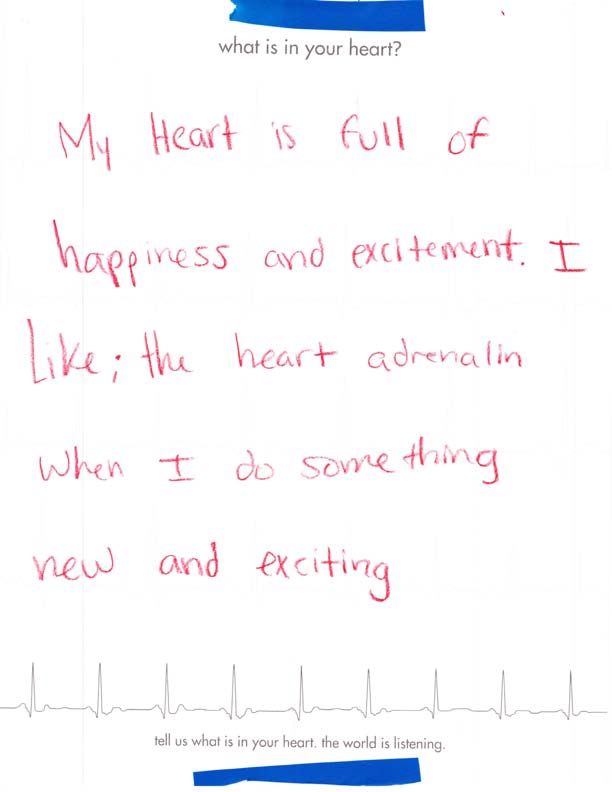 what is in your heart?
My Heart is full of
happiness and excitement. I
Like; the heart adrenalin
when I do something
new and exciting
tell us what is in your heart. the world is listening.